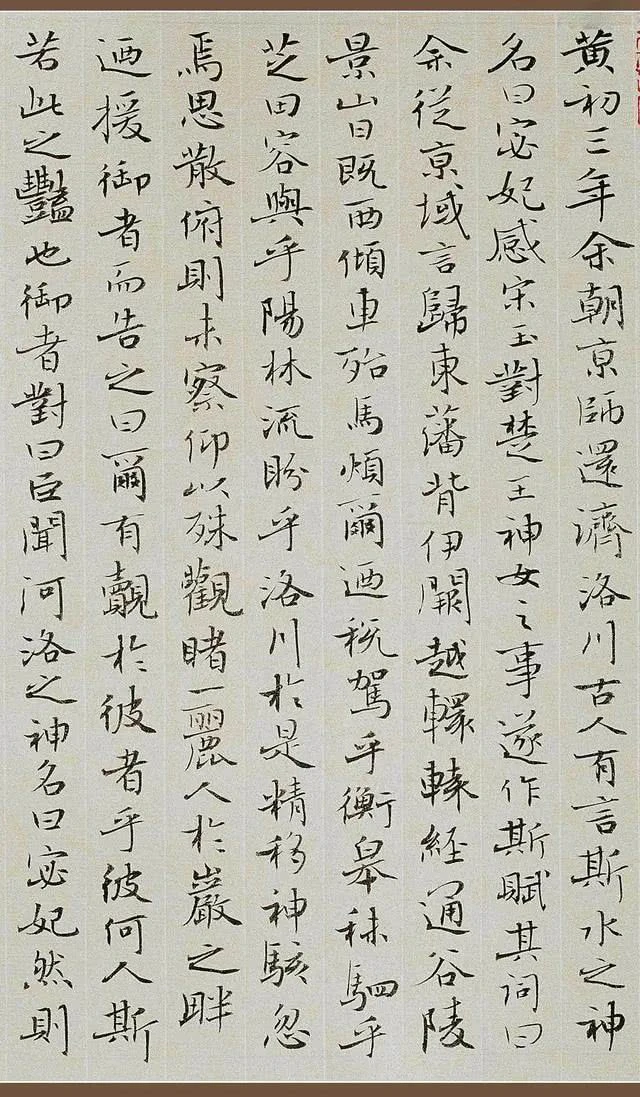 黄初三年余朝京師還濟洛川古人有言斯水之神
名曰宓妃感宋玉對楚王神女之事遂作斯賦其词曰
余從京域言歸東藩背伊闕越轘轅經通谷陵
景山日既西傾車殆馬煩爾迺稅駕乎衡皋秣駟乎
芝田容與乎陽林流盼乎洛川於是精移神駭忽
焉思散俯則未察仰以殊觀睹一麗人於巖之畔
迺援御者而告之曰爾有覿於彼者乎彼何人斯
若此之豔也御者對曰臣聞河洛之神名曰宓妃然則